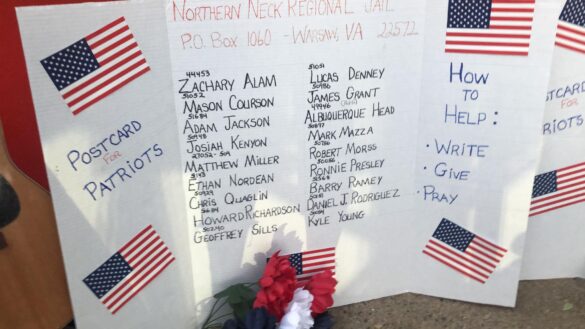 Northern Neck Regional Jail
P.O. Box 1060 - Warsaw, VA 22572
Postcard
for
Patriots
44453
Zachary Alam
51052
Mason Courson
51684
Adam Jackson
Josiah Kenyon
Matthew Miller
Ethan Nordean
50929
Chris Quaglin
Howard Richardson
50240
Geoffrey Sills
51051
Lucas Denney
50986
James Grant
Albuquerque Head
Mark Mazza
50786
Robert Morss
Ronnie Presley
Barry Ramey
Daniel J. Rodriguez
Kyle Young
How
to
Help:
• Write
• Give
• Pray